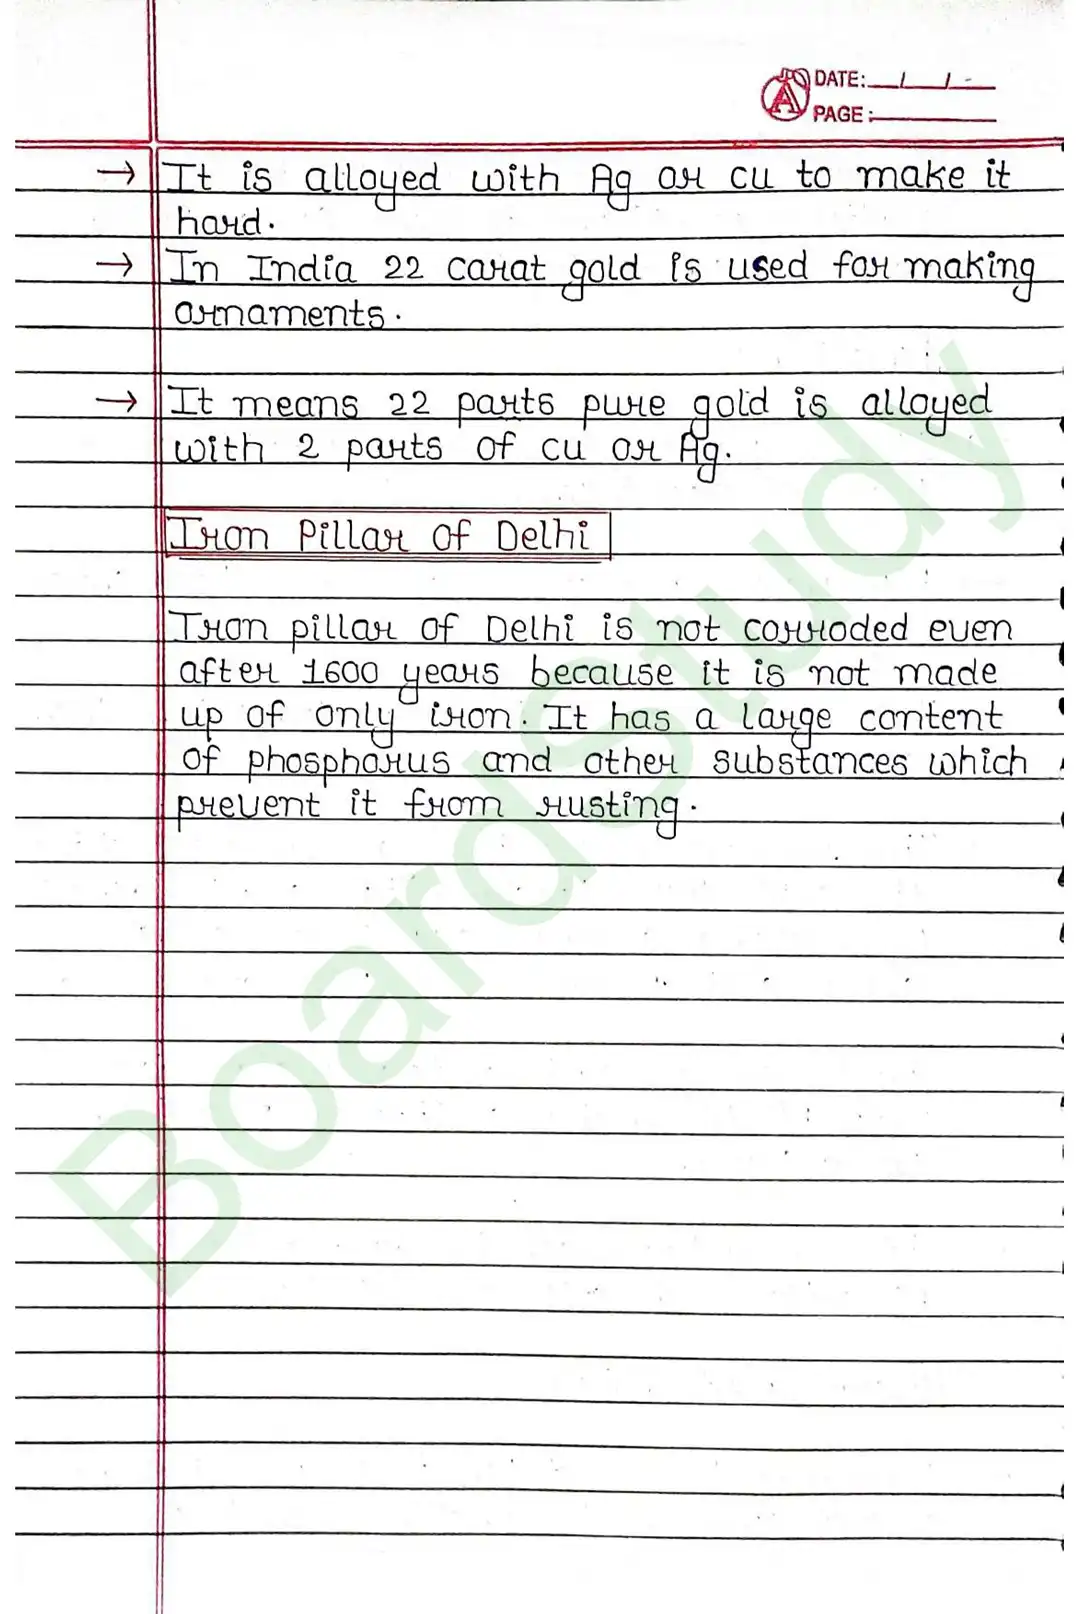 DATE: / / -
PAGE :
→ It is alloyed with Ag or cu to make it
hard.
→ In India 22 carat gold is used for making
ornaments.
→ It means 22 parts pure gold is alloyed
with 2 parts of cu or Ag.
Iron Pillar of Delhi
Iron pillar of Delhi is not corroded even
after 1600 years because it is not made
up of only iron. It has a large content
of phosphorus and other substances which
prevent it from rusting.
BoardStudy